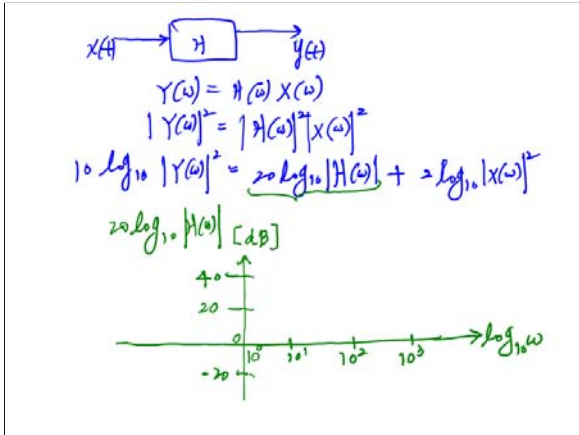 x(t) H y(t)
Y(ω) = H(ω) X(ω)
|Y(ω)|² = |H(ω)|² |X(ω)|²
10 log₁₀ |Y(ω)|² = 20 log₁₀ |H(ω)| + 2 log₁₀ |X(ω)|²
20 log₁₀ |H(ω)| [dB]
40
20
0
10⁰ 10¹ 10² 10³ log₁₀ ω
-20